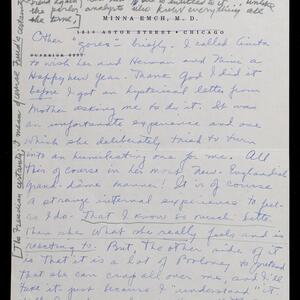 the
analysts who know everything all
the time.]
MINNA EMCH, M. D.
1325 ASTOR STREET • CHICAGO
SUPERIOR
Other "goes" - briefly. I called Anita
to wish her and Herman and Mimi a
Happy New Year. Thank God I did it
before I got an hysterical letter from
Mother asking me to do it. It was
an unfortunate experience and one
which she deliberately tried to turn
into an humiliating one for me. All
this of course in her most New-Englandish
Grand-dame manner! It is of course
a strange internal experience to feel
as I do. That I know so much better
than she what she really feels and is
reacting to. But, the other side of it
is that it is a lot of Pooloney to pretend
that she can crap all over me, and I'll
take it just because I "understand" it
[The Freudian certainty, I mean of course Freud's certainty,